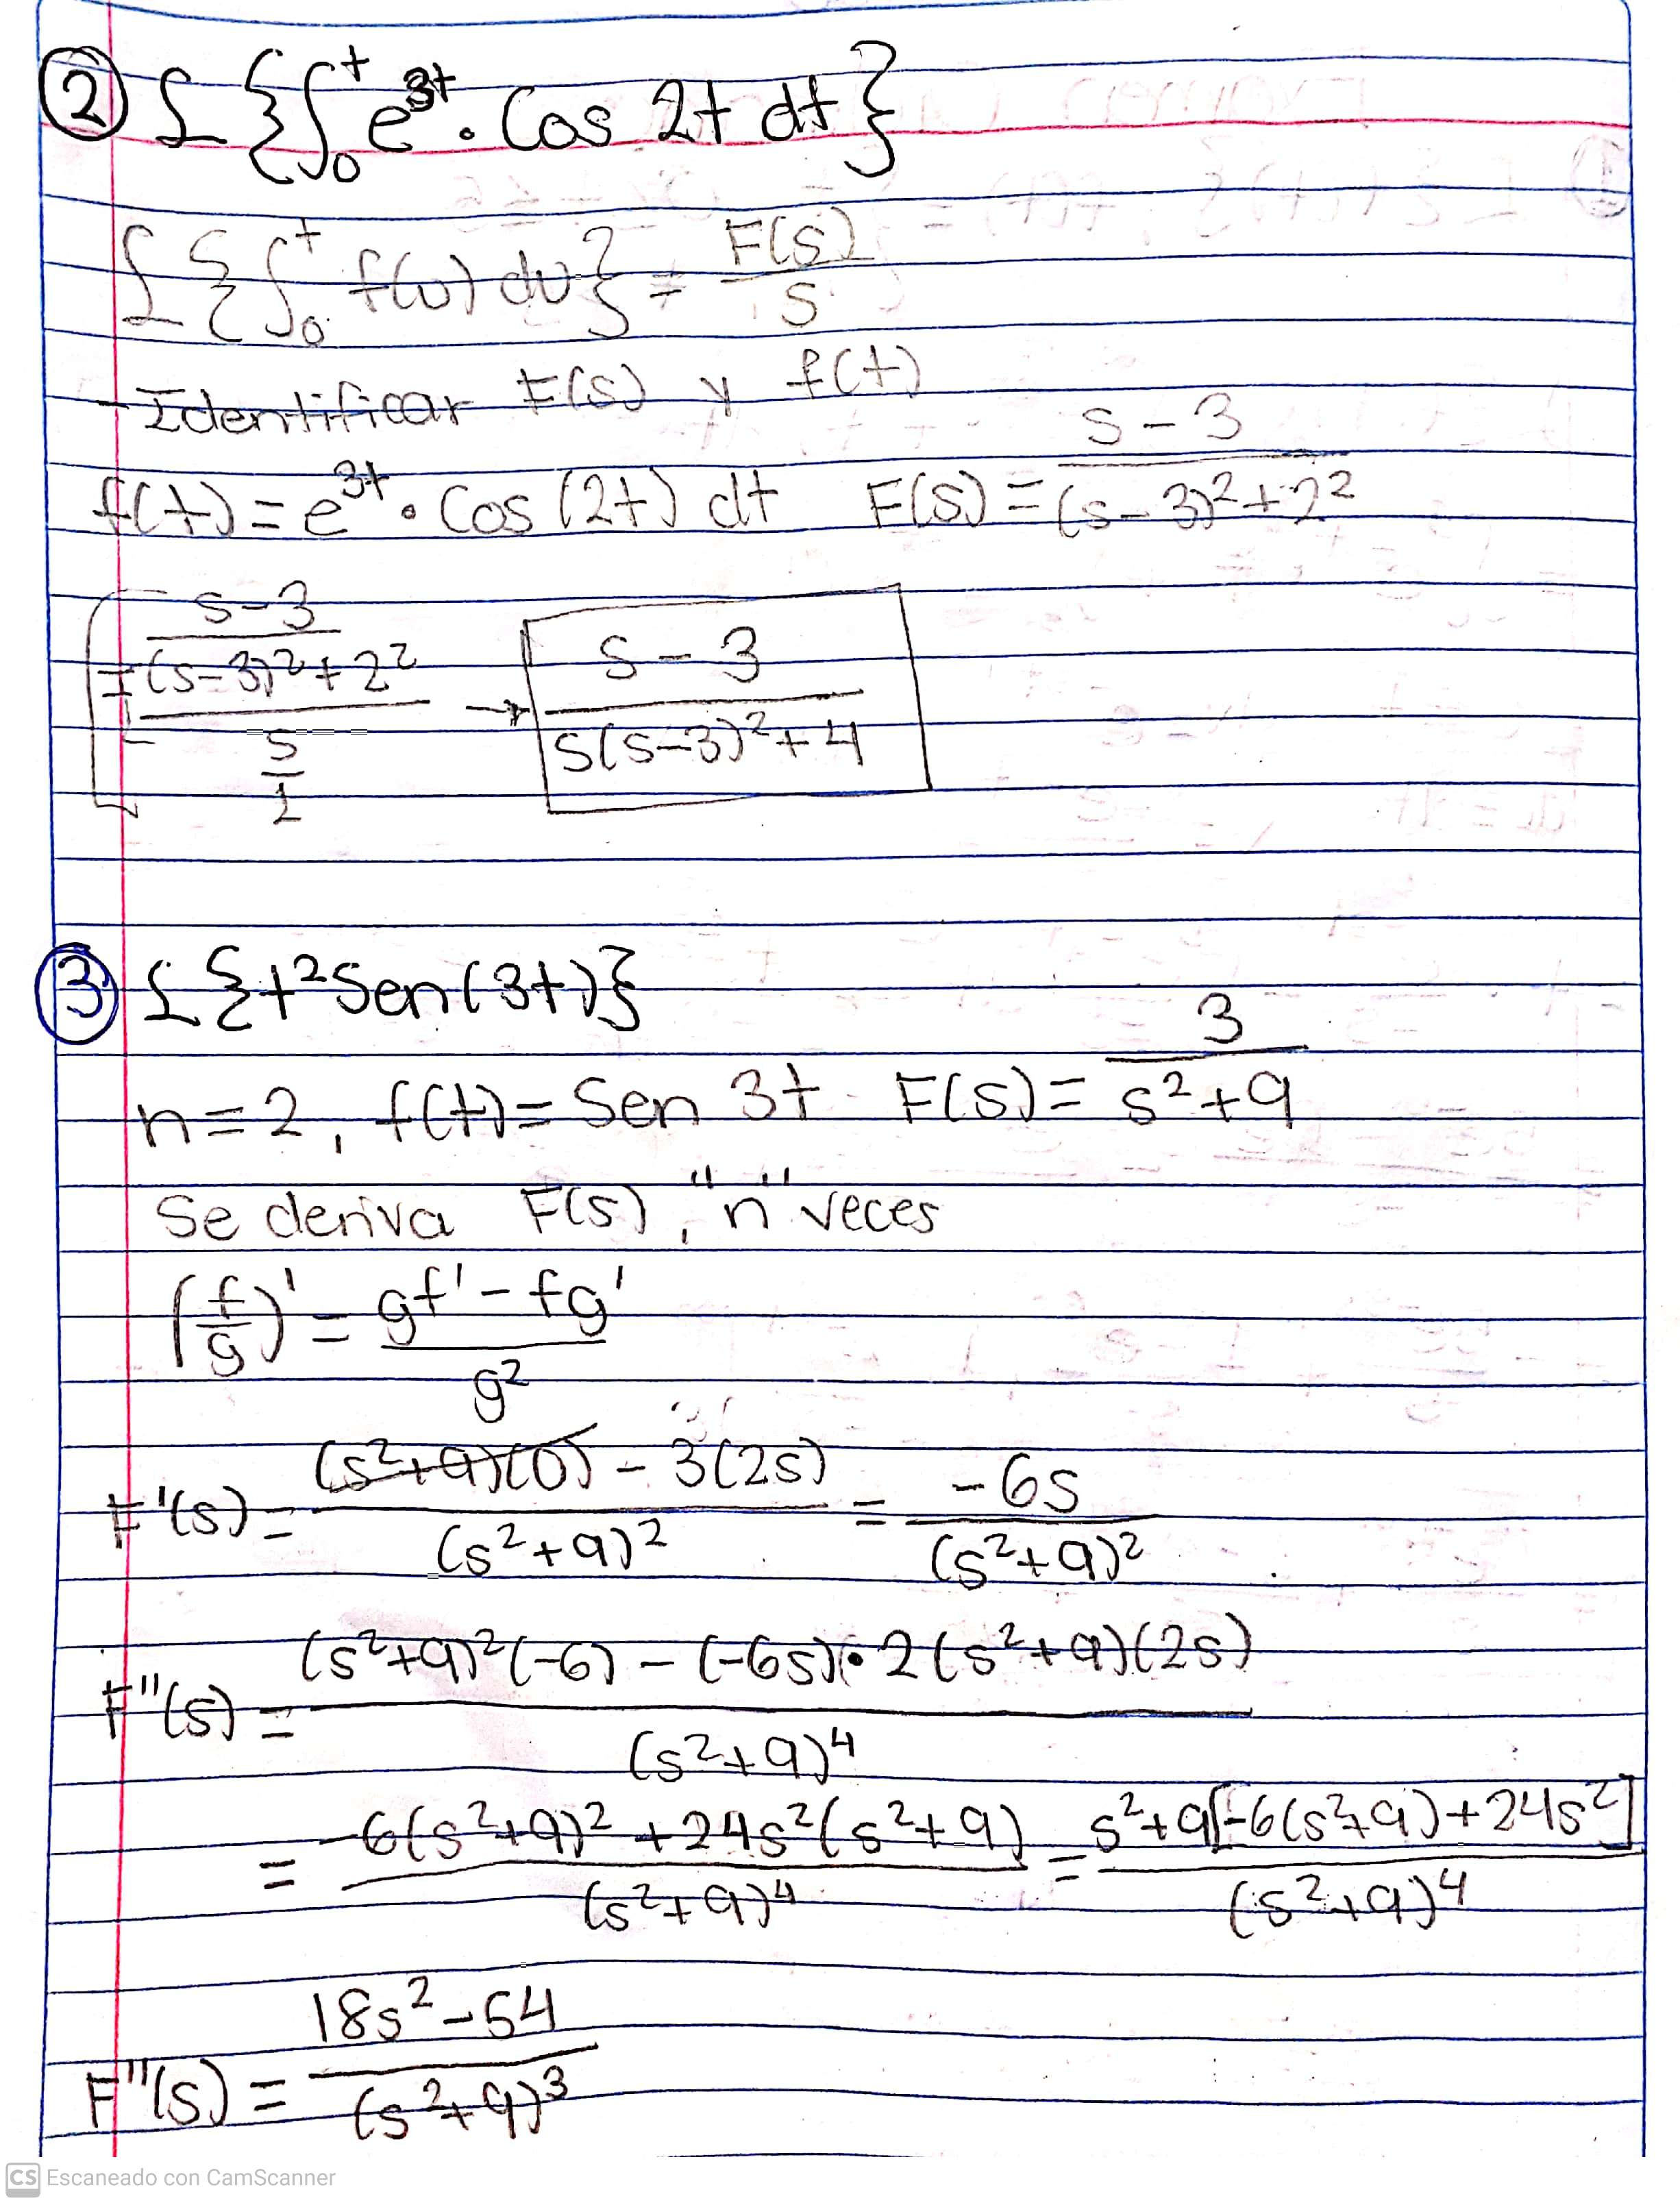 ② ℒ{∫₀ᵗ e³ᵗ · Cos 2t dt}
ℒ{∫₀ᵗ f(u) du} = F(s)/s
- Identificar F(s) y f(t)
f(t) = e³ᵗ · Cos (2t) dt F(s) = (s-3)/((s-3)²+2²)
= ((s-3)/((s-3)²+2²))/(s/1) → (s-3)/(s(s-3)²+4)
③ ℒ{t² Sen(3t)}
n=2, f(t)= Sen 3t F(s)= 3/(s²+9)
Se deriva F(s), "n" veces
(f/g)' = (gf' - fg')/g²
F'(s) = ((s²+9)(0) - 3(2s))/(s²+9)² = -6s/(s²+9)²
F''(s) = ((s²+9)²(-6) - (-6s) · 2(s²+9)(2s))/(s²+9)⁴
= (-6(s²+9)² + 24s²(s²+9))/(s²+9)⁴ = (s²+9[-6(s²+9)+24s²])/(s²+9)⁴
F''(s) = (18s²-54)/(s²+9)³
CS Escaneado con CamScanner